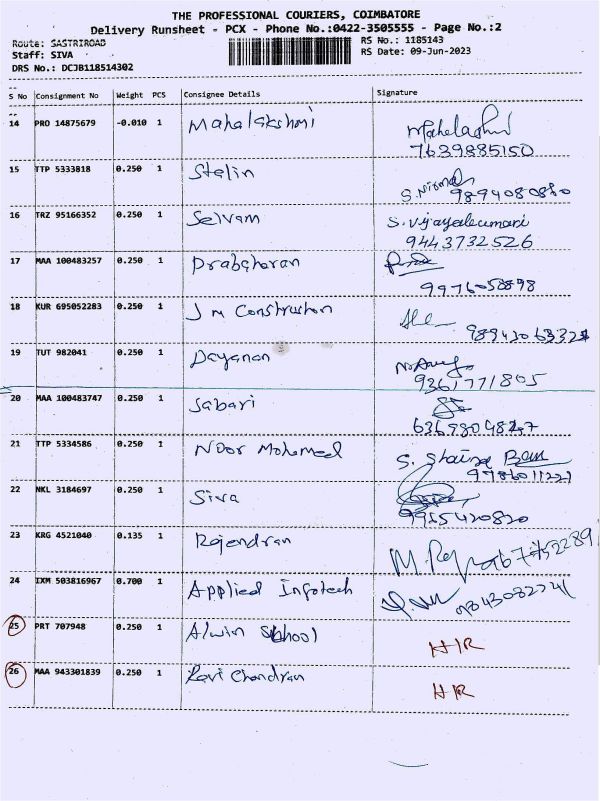 THE PROFESSIONAL COURIERS, COIMBATORE
Delivery Runsheet - PCX - Phone No.:0422-3505555 - Page No.:2
Route: SASTRIROAD RS No.: 1185143
Staff: SIVA RS Date: 09-Jun-2023
DRS No.: DCJB118514302
S No Consignment No Weight PCS Consignee Details Signature
14 PRO 14875679 -0.010 1 Mahalakshmi Mahelaghmi
7639885150
15 TTP 5333818 0.250 1 Stelin S. Nirmala
9894080880
16 TRZ 95166352 0.250 1 Selvam S. Vijayaleumari
9443732526
17 MAA 100483257 0.250 1 Prabaharan
9976058898
18 KUR 695052283 0.250 1 J M Construction
19 TUT 982041 0.250 1 Dayanan
9361771805
20 MAA 100483747 0.250 1 Sabari
21 TTP 5334586 0.250 1 Noor Mohamed
22 NKL 3184697 0.250 1 Siva
9955420820
23 KRG 4521040 0.135 1 Rajendran
24 IXM 503816967 0.700 1 Applied Infotech
25 PRT 707948 0.250 1 Alwin School HR
26 MAA 943301839 0.250 1 Ravi Chandran HR